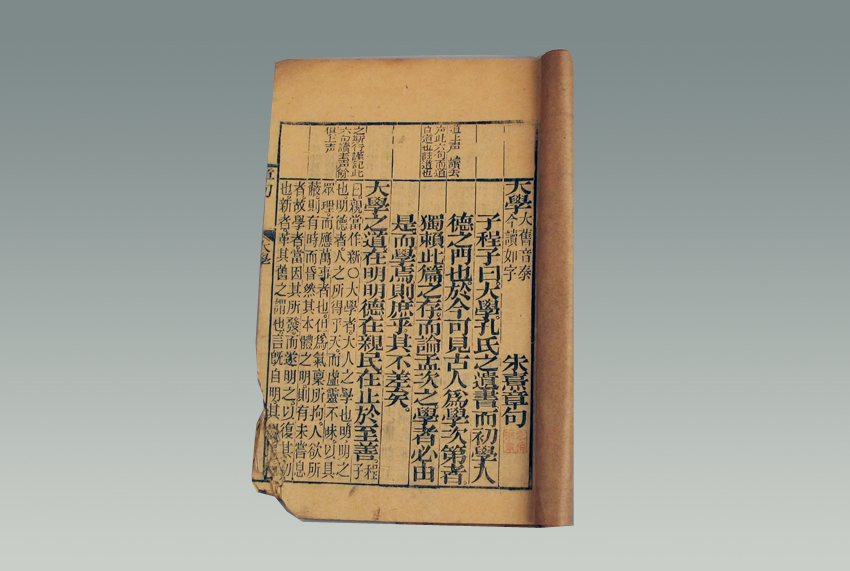 道上声 讀去
声此六句而道
道也註道也
道上声
大學 大舊音泰
今讀如字
朱熹章句
子程子曰。大學。孔氏之遺書。而初學入
德之門也。於今可見古人為學次第者。
獨賴此篇之存。而論孟次之。學者必由
是而學焉。則庶乎其不差矣。
大學之道。在明明德。在親民。在止於至善。程子
曰。親當作新○大學者大人之學也。明明之
也。明德者人之所得乎天。而虛靈不昧。以具
眾理。而應萬事者也。但爲氣稟所拘。人欲所
蔽。則有時而昏。然其本體之明。則有未嘗息
者。故學者當因其所發。而遂明之。以復其初
也。新者革其舊之謂也。言既自明其
大學